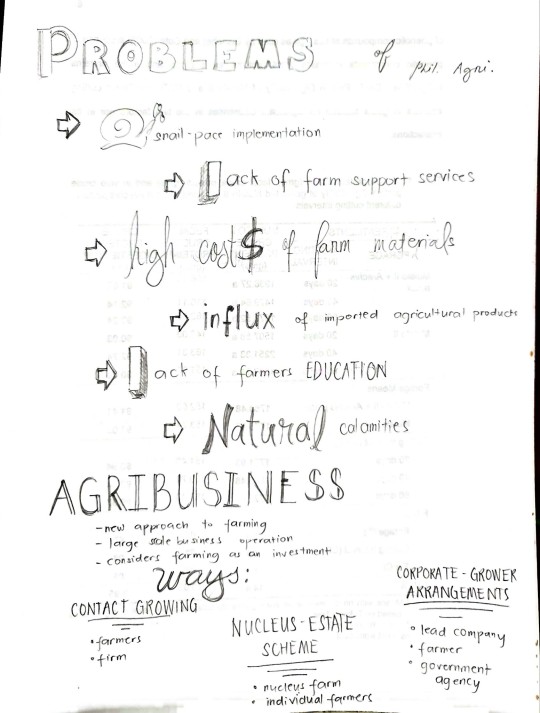 PROBLEMS of Phil. Agri.
snail-pace implementation
lack of farm support services
high cost$ of farm materials
influx of imported agricultural products
lack of farmers EDUCATION
Natural calamities
AGRIBUSINE$$
- new approach to farming
- large scale business operation
- considers farming as an investment
ways:
CONTACT GROWING
• farmers
• firm
NUCLEUS-ESTATE
SCHEME
• nucleus farm
• individual farmers
CORPORATE-GROWER
ARRANGEMENTS
• lead company
• farmer
• government
agency